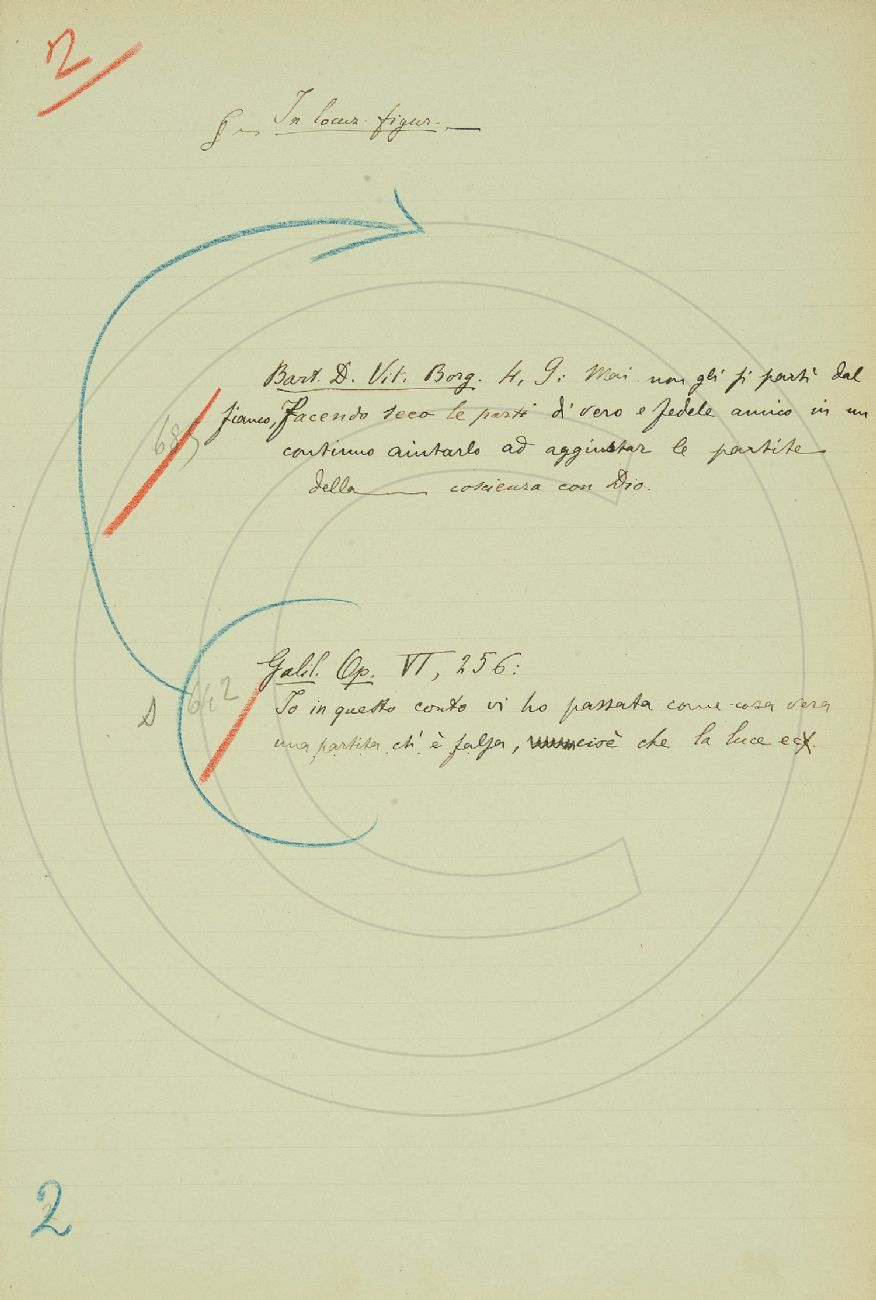 2
§ — In locuz. figur. —
Bart. D. Vit. Borg. 4, 9: Mai non gli si partì dal
fianco, facendo seco le parti di vero e fedele amico in un
continuo aiutarlo ad aggiustar le partite
della — coscienza con Dio.
685
Galil. Op. VI, 256:
642
Io in questo conto vi ho passata come cosa vera
una partita ch'è falsa, cioè che la luce ec.
2